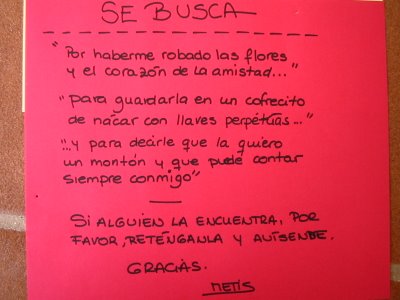 SE BUSCA
"Por haberme robado las flores
y el corazón de la amistad..."
"para guardarla en un cofrecito
de nácar con llaves perpétuas..."
"...y para decirle que la quiero
un montón y que puede contar
siempre conmigo"
SI ALGUIEN LA ENCUENTRA, POR
FAVOR, RETÉNGANLA Y AVISENME.
GRACIAS.
METIS